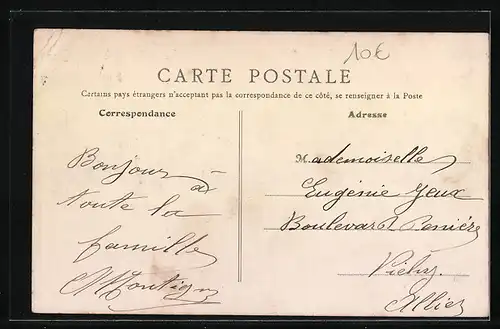 10€
CARTE POSTALE
Certains pays étrangers n'acceptant pas la correspondance de ce côté, se renseigner à la Poste
Correspondance
Adresse
Bonjour à
toute la
famille
Mademoiselle
Eugénie Jeux
Boulevard
Vichy.
Allier